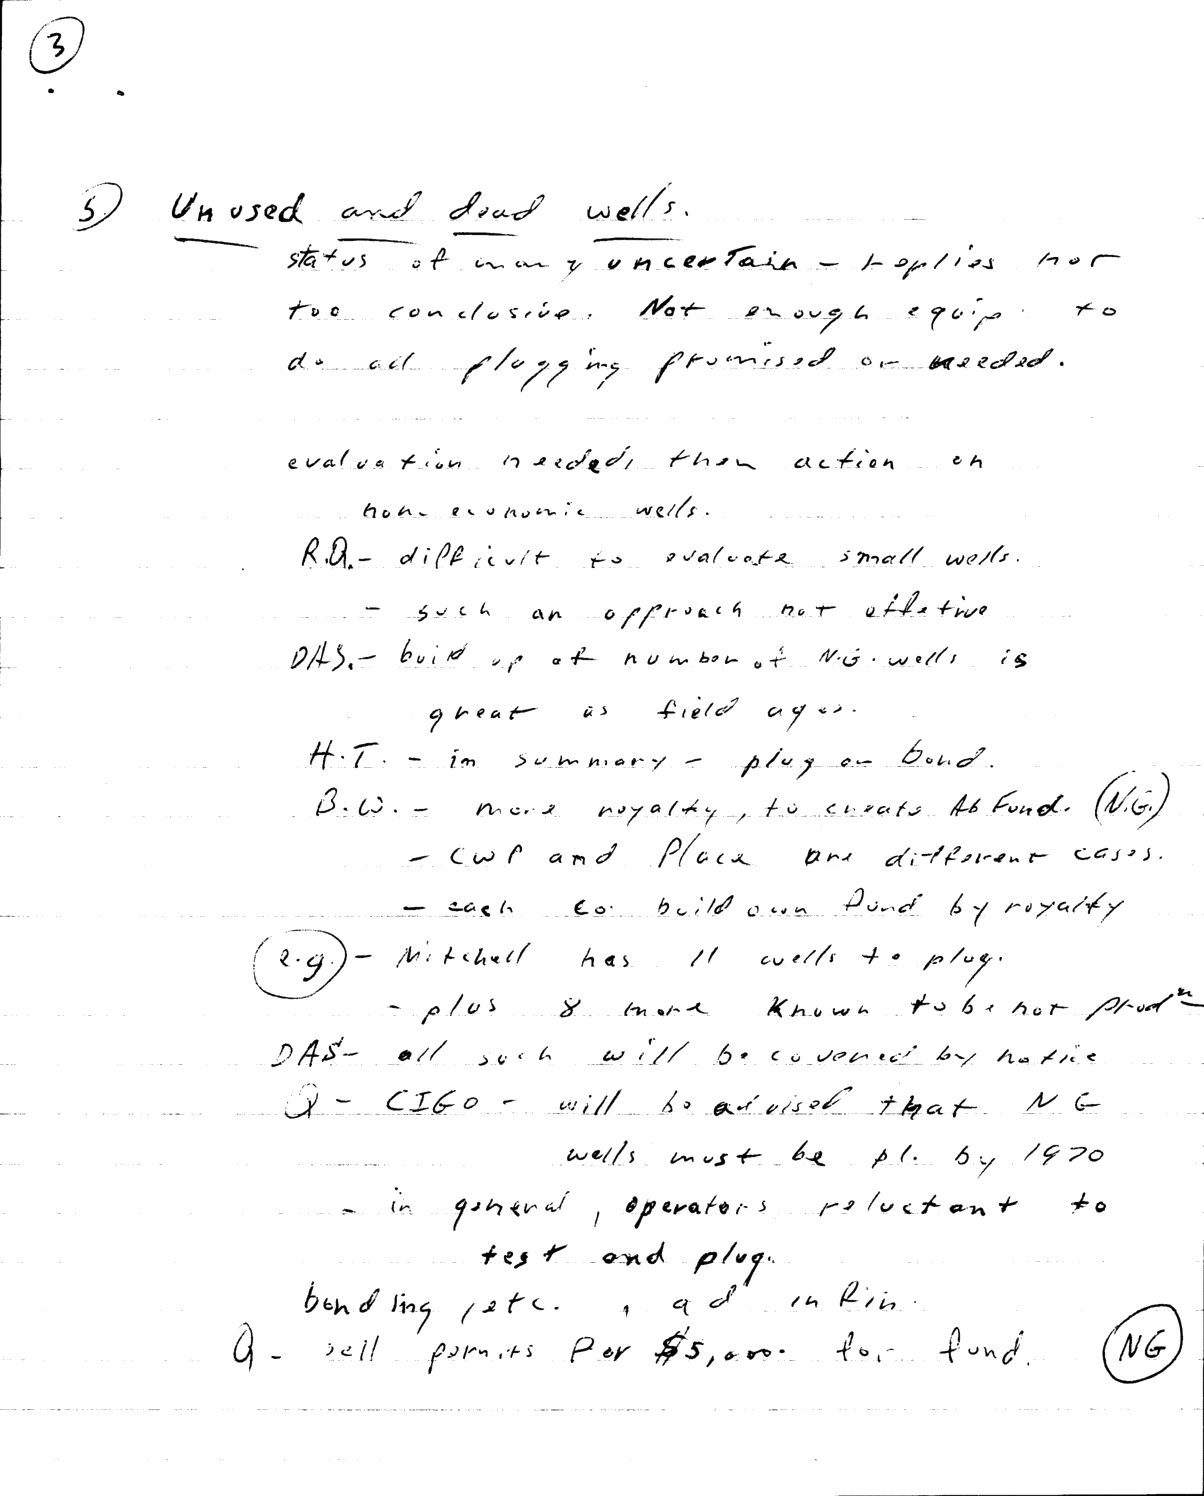 3
5) Unused and dead wells.
status of many uncertain - replies not
too conclusive. Not enough equip. to
do all plugging promised or needed.
evaluation needed, then action on
non-economic wells.
R.Q. - difficult to evaluate small wells.
- such an approach not effetive
DAS. - build up of number of N.G. wells is
great as field ages.
H.T. - in summary - plug or bond.
B.W. - more royalty, to create Ab Fund. (N.G.)
- CWP and Place are different cases.
- each co. build own fund by royalty
e.g. - Mitchell has 11 wells to plug.
- plus 8 more known to be not prodn
DAS - all such will be covered by notice
Q - CIGO - will be advised that NG
wells must be pl. by 1970
- in general, operators reluctant to
test and plug.
bonding, etc. , ad in
Q - sell permits for $5,000. for fund. NG